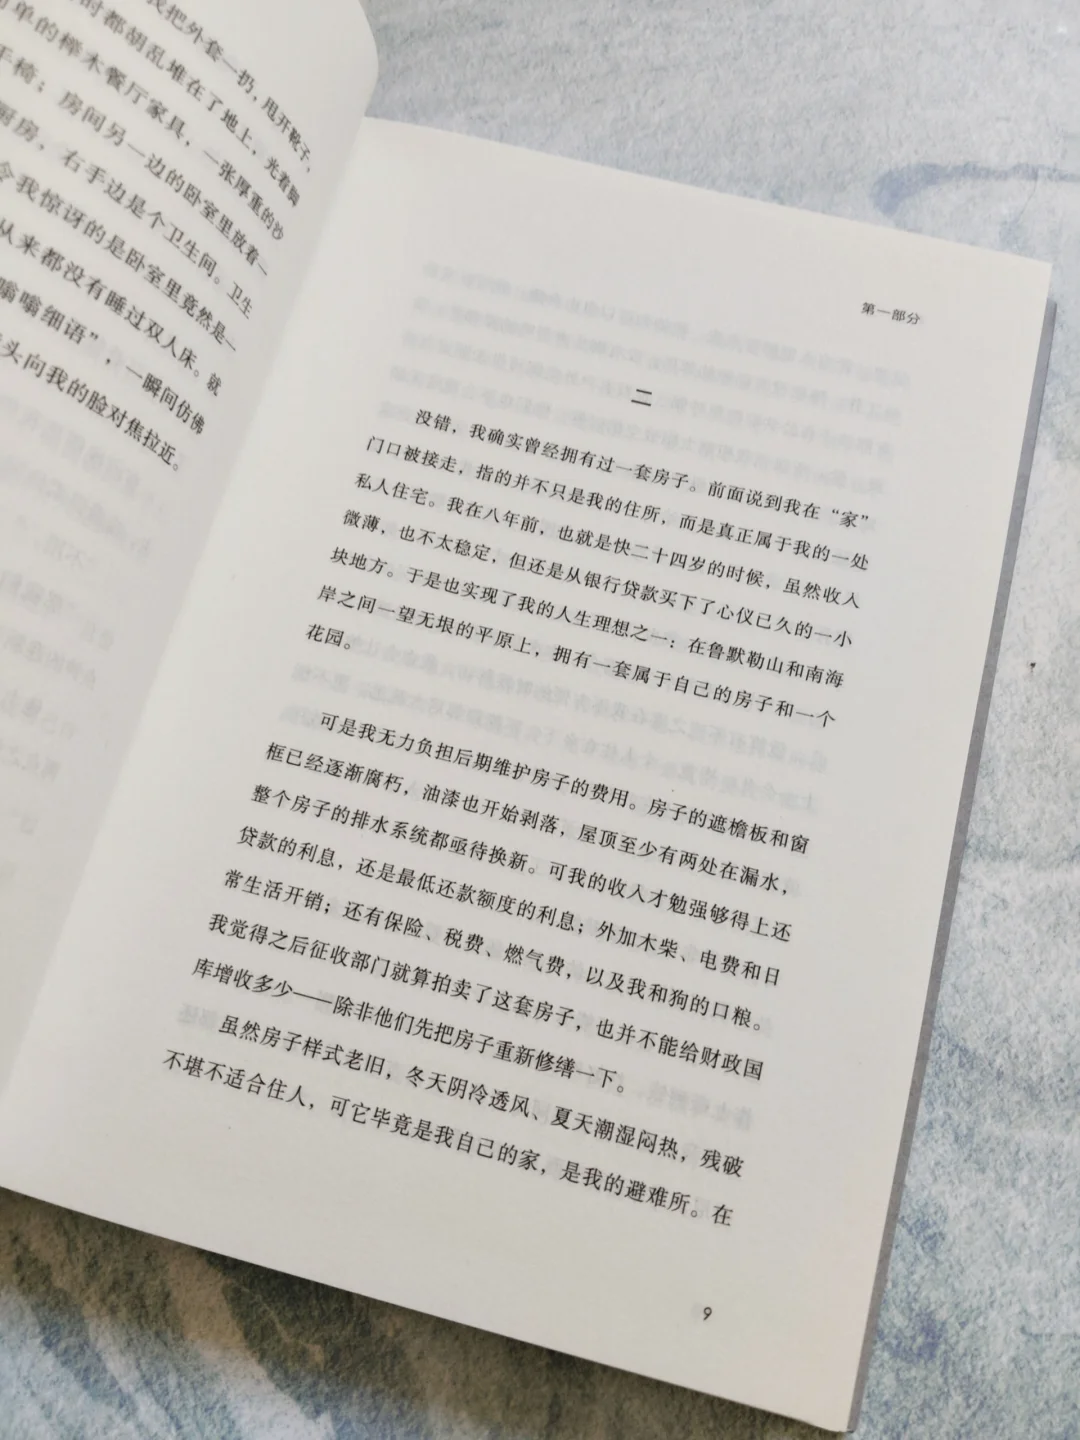 我把外套一扔，甩开靴子，
时都胡乱堆在了地上，光着脚
单的榉木餐厅家具，一张厚重的沙
手椅；房间另一边的卧室里放着一
厨房，右手边是个卫生间。卫生
令我惊讶的是卧室里竟然是一
从来都没有睡过双人床。就
嗡嗡细语”，一瞬间仿佛
头向我的脸对焦拉近。
第一部分
二
没错，我确实曾经拥有过一套房子。前面说到我在“家”
门口被接走，指的并不只是我的住所，而是真正属于我的一处
私人住宅。我在八年前，也就是快二十四岁的时候，虽然收入
微薄，也不太稳定，但还是从银行贷款买下了心仪已久的一小
块地方。于是也实现了我的人生理想之一：在鲁默勒山和南海
岸之间一望无垠的平原上，拥有一套属于自己的房子和一个
花园。
可是我无力负担后期维护房子的费用。房子的遮檐板和窗
框已经逐渐腐朽，油漆也开始剥落，屋顶至少有两处在漏水，
整个房子的排水系统都亟待换新。可我的收入才勉强够得上还
贷款的利息，还是最低还款额度的利息；外加木柴、电费和日
常生活开销；还有保险、税费、燃气费，以及我和狗的口粮。
我觉得之后征收部门就算拍卖了这套房子，也并不能给财政国
库增收多少——除非他们先把房子重新修缮一下。
虽然房子样式老旧，冬天阴冷透风、夏天潮湿闷热，残破
不堪不适合住人，可它毕竟是我自己的家，是我的避难所。在
9